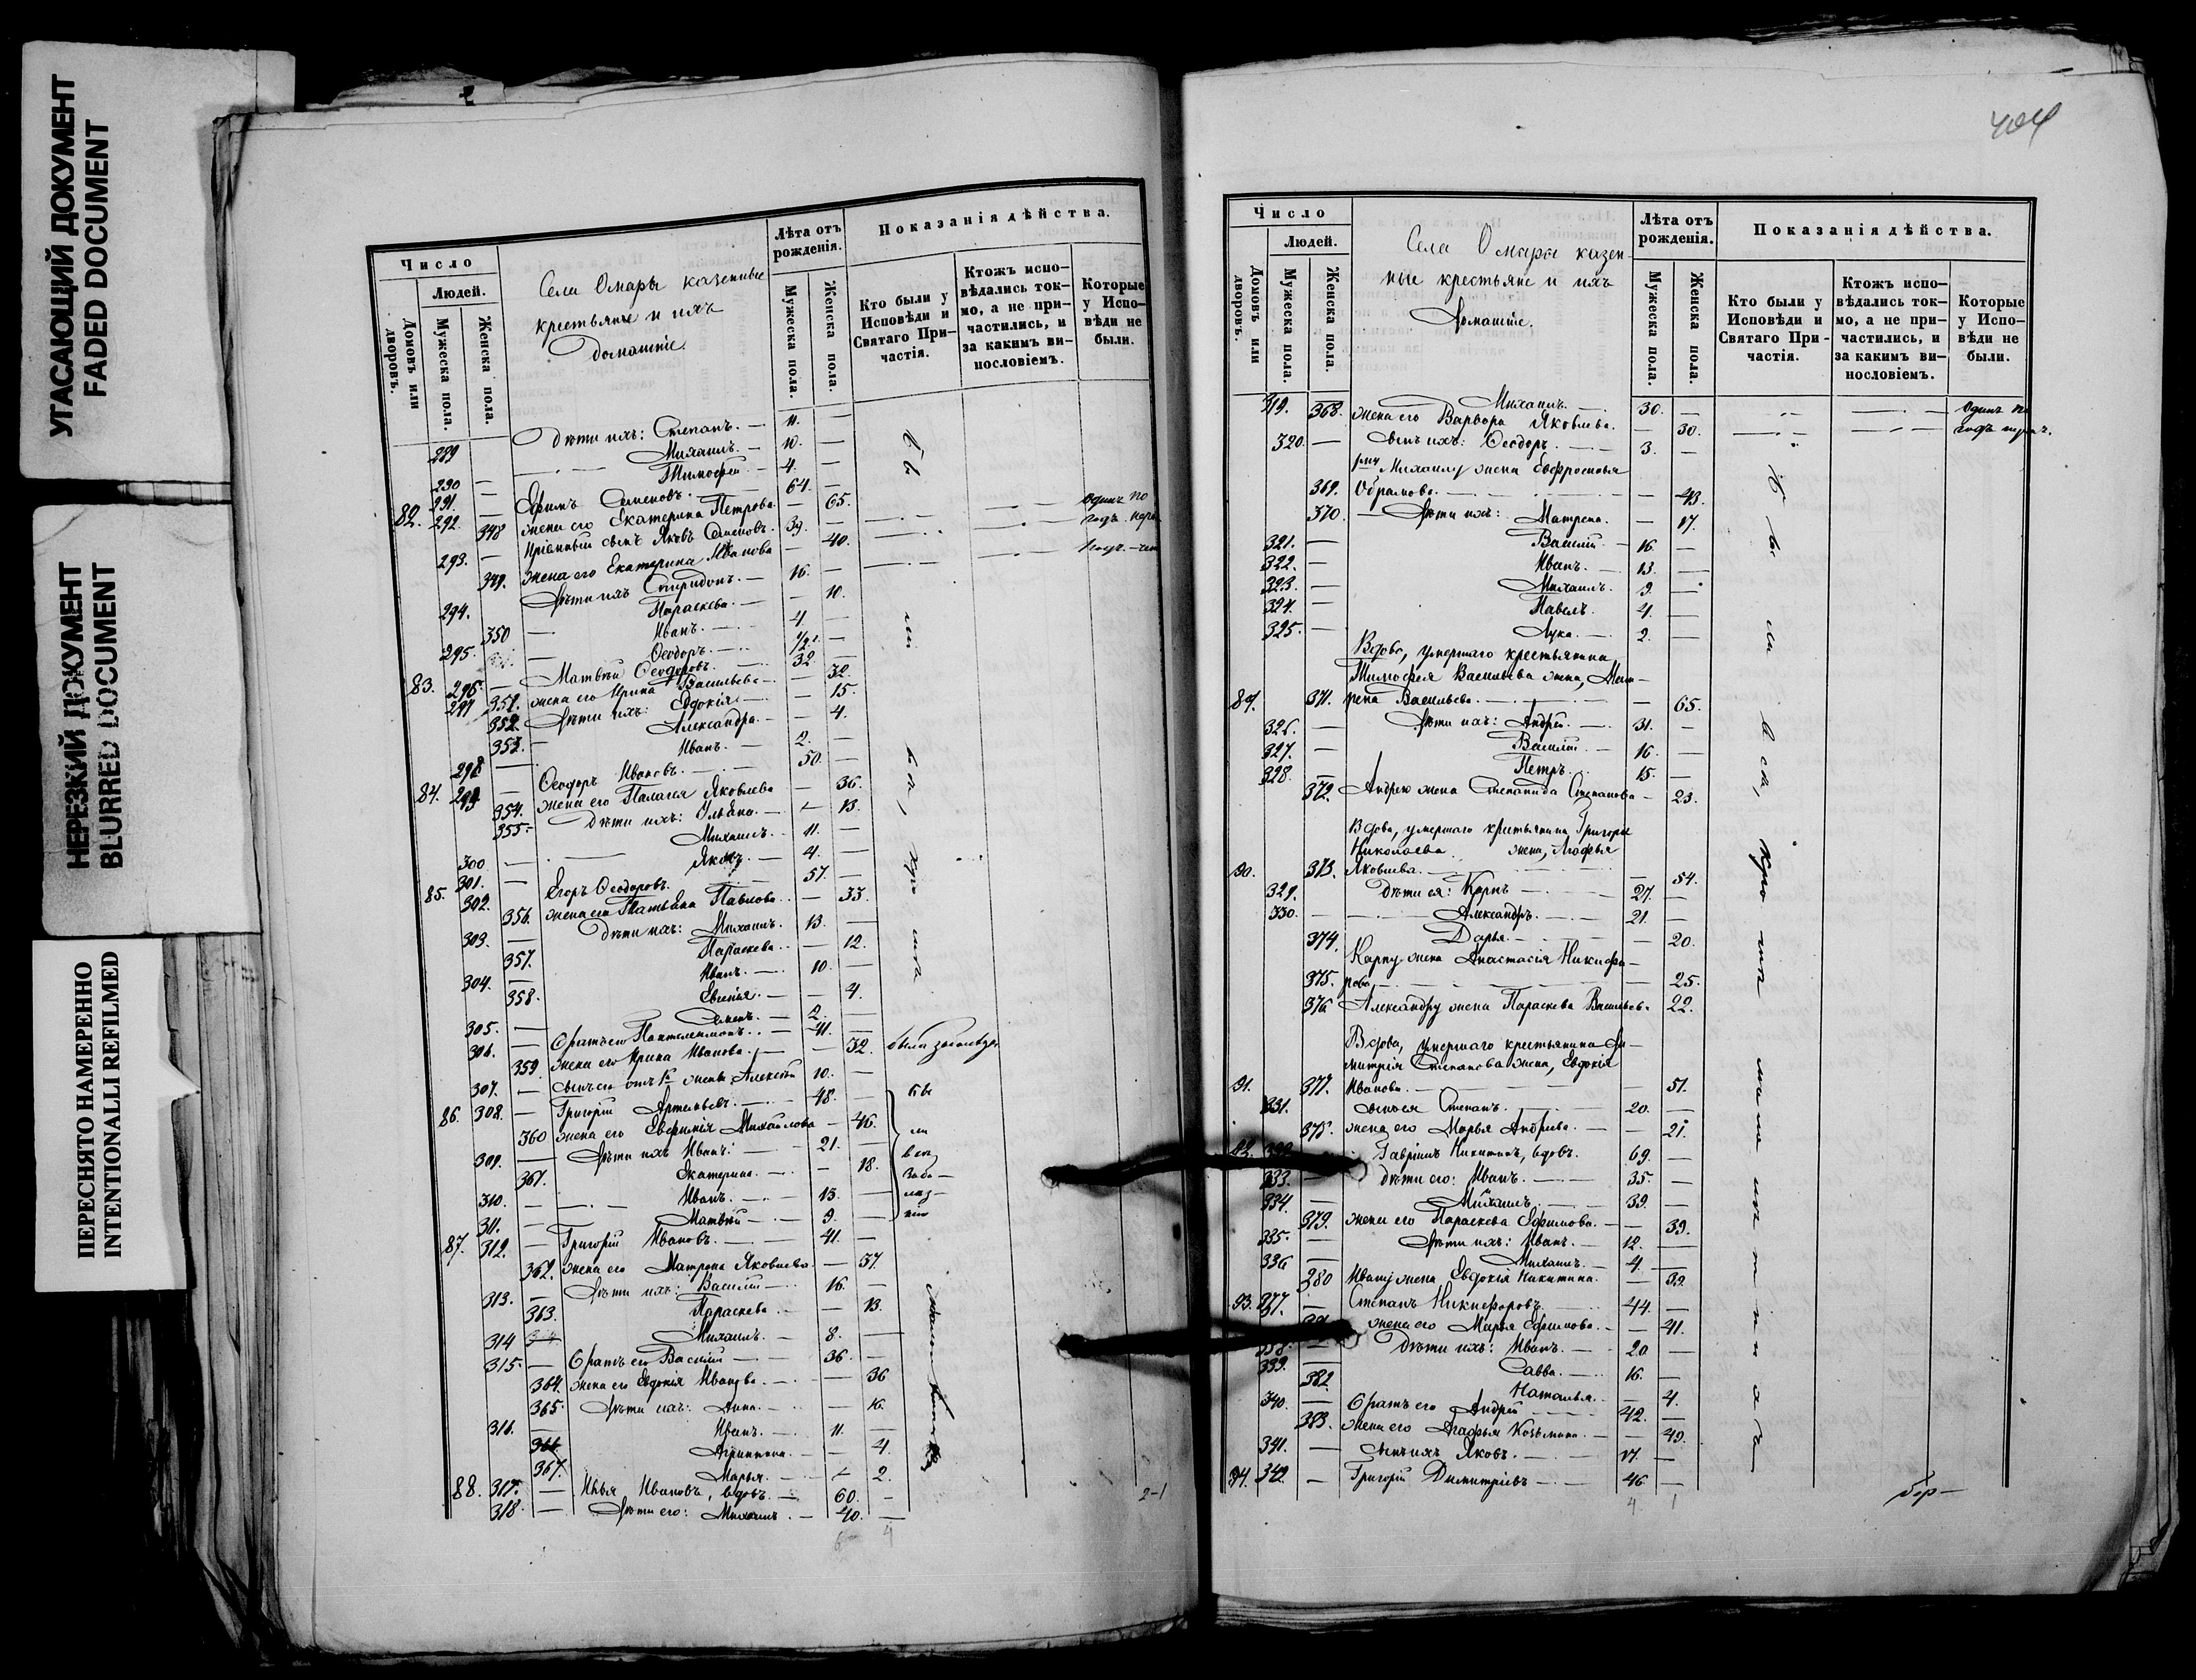 УГАСАЮЩИЙ ДОКУМЕНТ
FADED DOCUMENT
НЕРЕЗКИЙ ДОКУМЕНТ
BLURRED DOCUMENT
ПЕРЕСНЯТО НАМЕРЕННО
INTENTIONALLI REFILMED
Число
Людей.
Домовъ или дворовъ.
Мужеска пола.
Женска пола.
Села Омары казенные
крестьяне и ихъ
домашніе.
Лѣта отъ рожденія.
Мужеска пола.
Женска пола.
Показанія дѣйства.
Кто были у Исповѣди и Святаго Причастія.
Ктожъ исповѣдались токмо, а не причастились, и за какимъ винословіемъ.
Которые у Исповѣди не были.
289 Дѣти ихъ: Степанъ. 11.
290 Михаилъ. 10.
291 Тимофей 4.
82. 292. Ефимъ Семеновъ. 64.
348 жена его Екатерина Петрова. 65.
293. Пріемный сынъ Яковъ Семеновъ. 39.
349. жена его Екатерина Иванова 40.
294. Дѣти ихъ Спиридонъ. 16.
350 Параскева. 10.
295. Иванъ. 4.
296. Ѳеодоръ. 1/2
83. 297 Матвѣй Ѳеодоровъ. 32
351. жена его Ирина Васильева 32.
352. Дѣти ихъ: Евдокія 15.
353. Александра. 4.
298 Иванъ. 2.
84. 299 Ѳеодоръ Ивановъ. 50.
354. жена его Палагея Яковлева 36.
355. Дѣти ихъ: Ульяна. 13.
300 Михаилъ. 11.
301. Яковъ. 4.
85. 302. Егоръ Ѳеодоровъ. 57.
356. жена его Татьяна Павлова. 33.
303. Дѣти ихъ: Михаилъ. 13.
357. Параскева. 12.
304. Иванъ. 10.
358. Евгенія. 4.
305. 2.
306. Братъ его Пантелеимонъ. 41.
359 жена его Ирина Иванова. 32.
307. сынъ его отъ 1й жены Алексѣй 10.
86. 308. Григорій Артемьевъ. 48.
360 жена его Евфимія Михайлова 46.
309. Дѣти ихъ Иванъ: 21.
361. Екатерина. 18.
310. Иванъ. 13.
311. Матвѣй 9.
87. 312. Григорій Ивановъ. 41.
362. жена его Матрена Яковлева. 37.
313. Дѣти ихъ: Василій 16.
363. Параскева. 13.
314 Михаилъ. 8.
315. Братъ его Василій 36.
364. жена его Евдокія Иванова. 36
365. Дѣти ихъ: Анна. 16.
316. Иванъ. 11.
366 Агрипина. 4.
367. Марья. 2.
88. 317. Илья Ивановъ, вдовъ. 60.
318. Дѣти его: Михаилъ 40.
6 4
2-1
404
Число
Людей.
Домовъ или дворовъ.
Мужеска пола.
Женска пола.
Села Омары казен-
ные крестьяне и ихъ
домашніе.
Лѣта отъ рожденія.
Мужеска пола.
Женска пола.
Показанія дѣйства.
Кто были у Исповѣди и Святаго Причастія.
Ктожъ исповѣдались токмо, а не причастились, и за какимъ винословіемъ.
Которые у Исповѣди не были.
319. Михаилъ. 30.
368. жена его Варвора Яковлева. 30.
320. сынъ ихъ: Ѳеодоръ. 3.
Михаилу жена Евфросинья
369. Обрамова. 43.
370. Дѣти ихъ: Матрена. 17.
321. Василій 16.
322. Иванъ. 13.
323. Михаилъ. 9.
324. Павелъ. 4.
325. Лука. 2.
Вдова, умершаго крестьянина
Тимофея Васильева жена, Мат-
89. 371. рена Васильева 65.
326. Дѣти ихъ: Андрей. 31.
327. Василій. 16.
328. Петръ. 15.
372. Андрею жена Степанида Степанова 23.
Вдова, умершаго крестьянина Григорія
Николаева жена, Агафья
90. 373. Яковлева. 54.
329. Дѣти ея: Карпъ 27.
330. Александръ. 21.
374. Дарья. 20.
Карпу жена Анастасія Никифо-
375. рова 25.
376. Александру жена Параскева Васильев. 22.
Вдова, умершаго крестьянина Ди-
митрія Степанова жена, Евдокія
91. 377. Иванова. 51.
331. сынъ ея Степанъ. 20.
378. жена его Марья Андреева. 21.
92. 332 Гавріилъ Никитинъ, вдовъ. 69.
333. Дѣти его: Иванъ. 35.
334. Михаилъ. 39.
379. жена его Параскева Ефимова. 39.
335. Дѣти ихъ: Иванъ. 12.
336 Михаилъ. 4.
380 Ивану жена Евдокія Никитина. 39.
93. 337. Степанъ Никифоровъ. 44.
жена его Марья Ефимова. 41.
338. Дѣти ихъ: Иванъ. 20
339. Савва. 16.
382 Наталья. 4.
340. Братъ его Андрей 42.
383. жена его Агафья Козьмина. 40.
341. сынъ ихъ Яковъ. 17.
94. 342. Григорій Димитріевъ 46
4 1